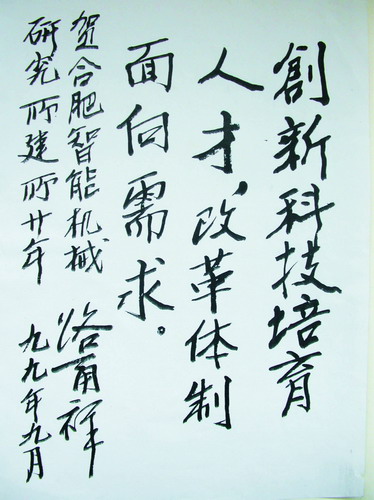 創新科技培育
人才,改革体制
面向需求。
贺合肥智能机械
研究所建所廿年
路甬祥
九九年九月